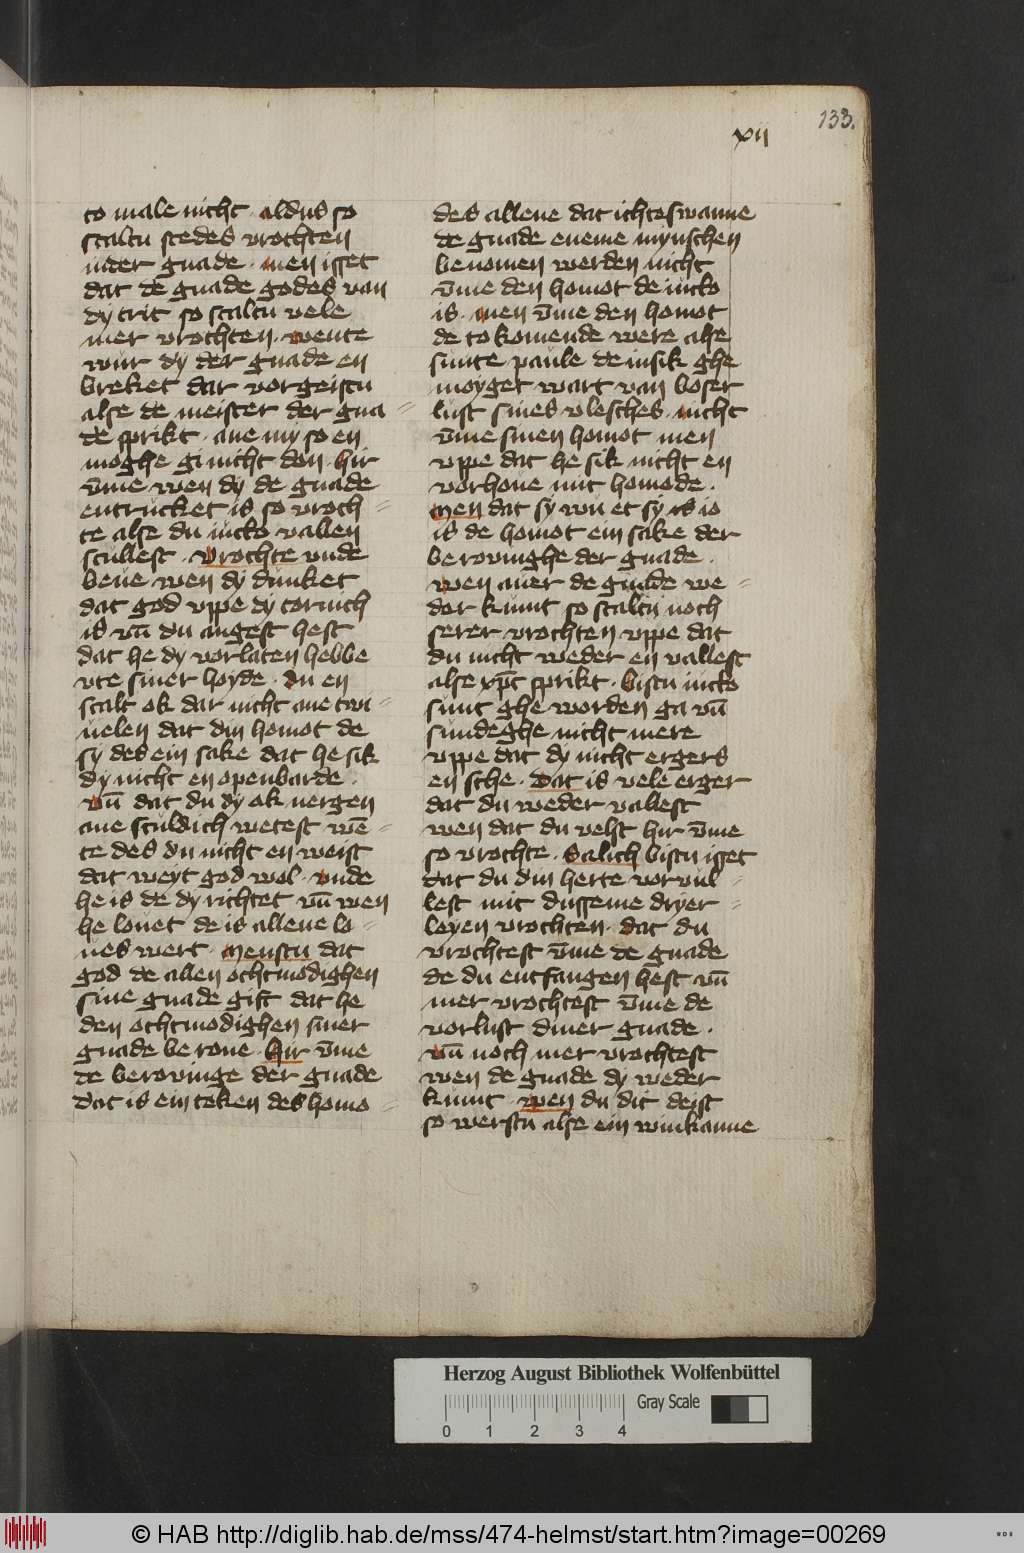 133.
xii
to male nicht · aldus so
scaltu stedes vrochten
inder gnade · men isset
dat de gnade godes van
dy trit so scaltu vele
mer vrochten · wente
wur dy der gnade en
breket dar vorgeistu
alse de meister der gna=
de sprikt · ane my so en
moghe gi nicht don · hir
v̄me wen dy de gnade
entrucket is so vroch=
te alse du iucto vallen
scullest · vrochte vnde
beue wen dy dunket
dat god vppe dy tornich
is vn̄ du angest hest
dat he dy vorlaten hebbe
vte siner hoyde · du en
scalt ok dar nicht ane twi=
uelen dat din homot de
sy des ein sake dat he sik
dy nicht en openbarde ·
vn̄ dat du dy ok nergen
ane sculdich wetest wē=
te des du nicht en weist
dat weyt god wol · vnde
he is de dy richtet vn̄ wen
he louet de is allene lo=
ues wert · Menstu dat
god de allen ochtmodighen
sine gnade gift dat he
den ochtmodighen siner
gnade be roue · hir v̄me
de berovinge der gnade
dat is ein teken des homo=
des allene dat ichteswanne
de gnade eneme mynschen
benomen werden nicht
v̄me den homot de iucto
is · men v̄me den homot
de to komende were alse
sunte paule de insik ghe
moyget wart van boser
lust sines vlesches · nicht
v̄me sinen homot men
vppe dat he sik nicht en
vorhoue mit homode ·
Men dat sy wu et sy is io
is de homot ein sake der
be rovinghe der gnade ·
wen auer de gnade we=
der kumt so scaltu noch
serer vrochten vppe dat
du nicht weder en vallest
alse xp̄c sprikt · bistu iucto
sunt ghe worden ga vn̄
sundeghe nicht mere
vppe dat dy nicht ergers
en sche · Dat is vele erger
dat du weder vallest
wen dat du velst hir v̄me
so vrochte · Salich bistu isset
dat du din herte vorvul=
lest mit dusseme dryer=
leyen vrochten · dat du
vrochtest v̄me de gnade
de du entfangen hest vn̄
mer vrochtest v̄me de
vorlust diner gnade ·
vn̄ noch mer vrochtest
wen de gnade dy weder
kumt · wen du dit deist
so werstu alse ein winkanne
Herzog August Bibliothek Wolfenbüttel
Gray Scale
0 1 2 3 4
© HAB http://diglib.hab.de/mss/474-helmst/start.htm?image=00269